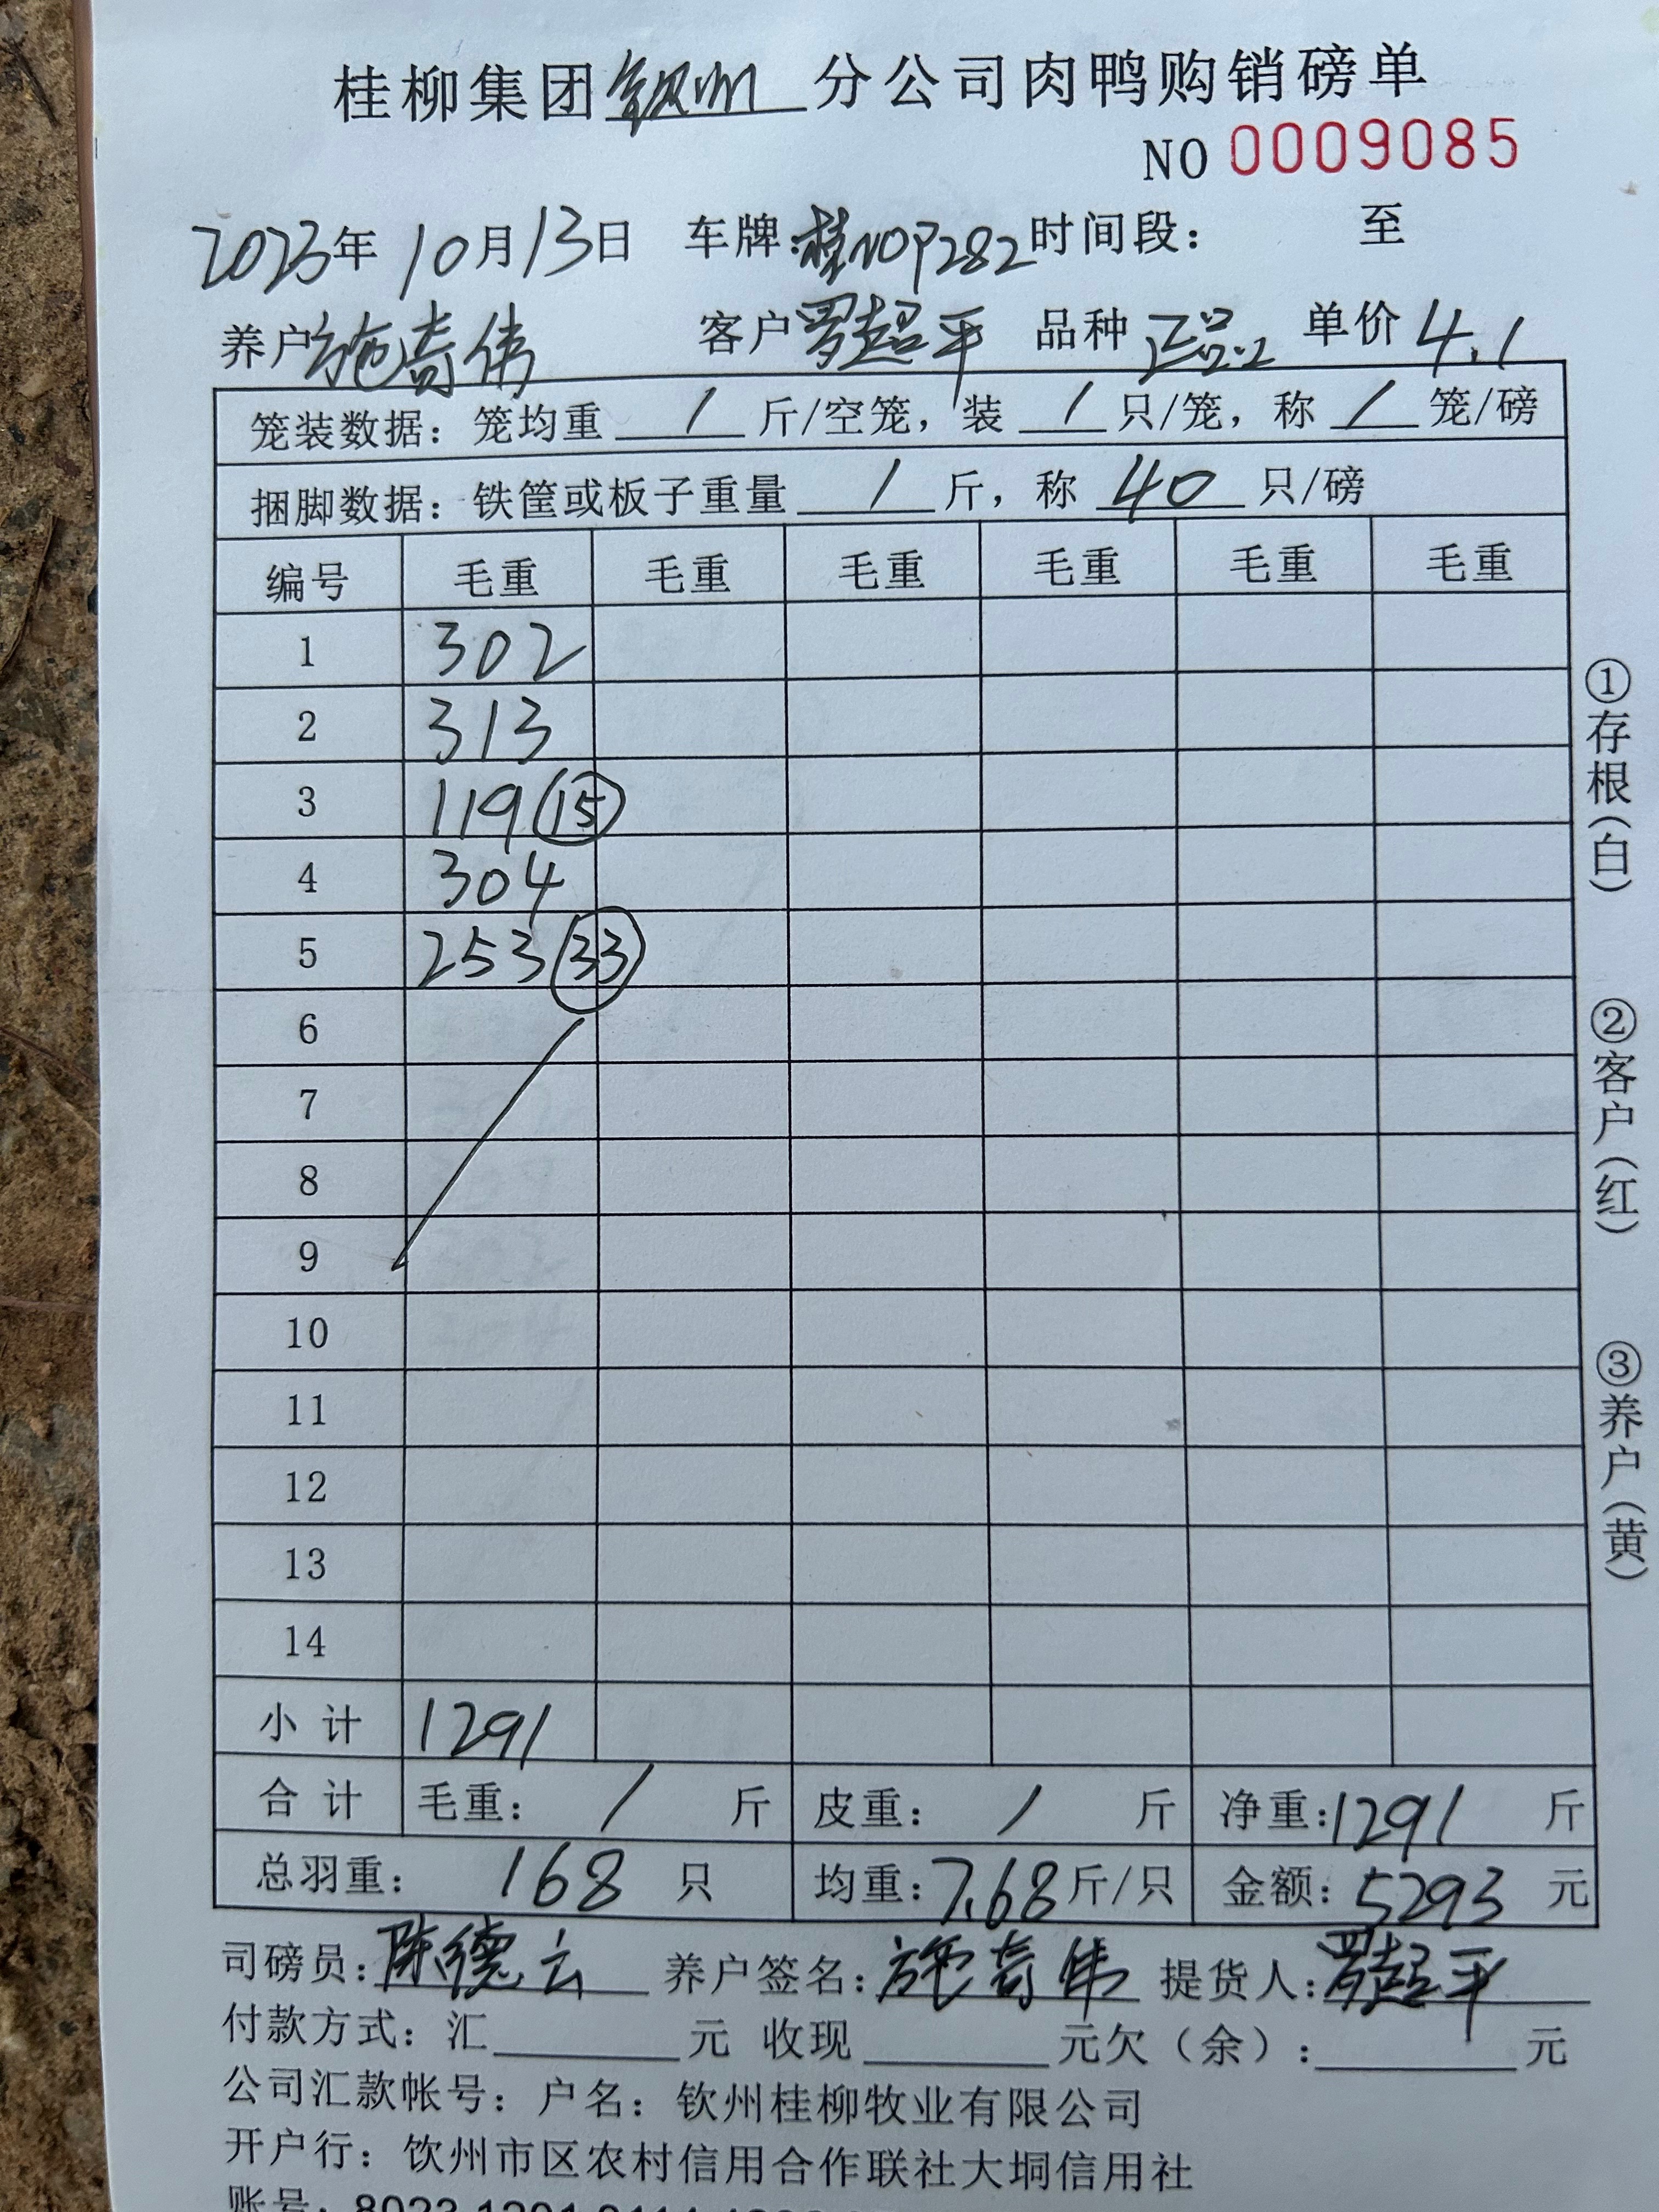 桂柳集团钦州分公司肉鸭购销磅单
NO 0009085
2023年10月13日 车牌:桂N0P282 时间段: 至
养户 施奇伟 客户 罗超平 品种 正品.2 单价 4.1
笼装数据: 笼均重 / 斤/空笼, 装 / 只/笼, 称 / 笼/磅
捆脚数据: 铁筐或板子重量 / 斤, 称 40 只/磅
编号 毛重 毛重 毛重 毛重 毛重 毛重
1 302
2 313
3 119 ⑮
4 304
5 253 ㉝
6
7
8
9
10
11
12
13
14
小计 1291
合计 毛重: / 斤 皮重: / 斤 净重:1291 斤
总羽重: 168 只 均重:7.68斤/只 金额: 5293 元
司磅员:陈德云 养户签名:施奇伟 提货人:罗超平
付款方式: 汇 元 收现 元欠(余): 元
公司汇款帐号: 户名: 钦州桂柳牧业有限公司
开户行: 钦州市区农村信用合作联社大垌信用社
账号: 8023 1201 0114
①存根(白)
②客户(红)
③养户(黄)